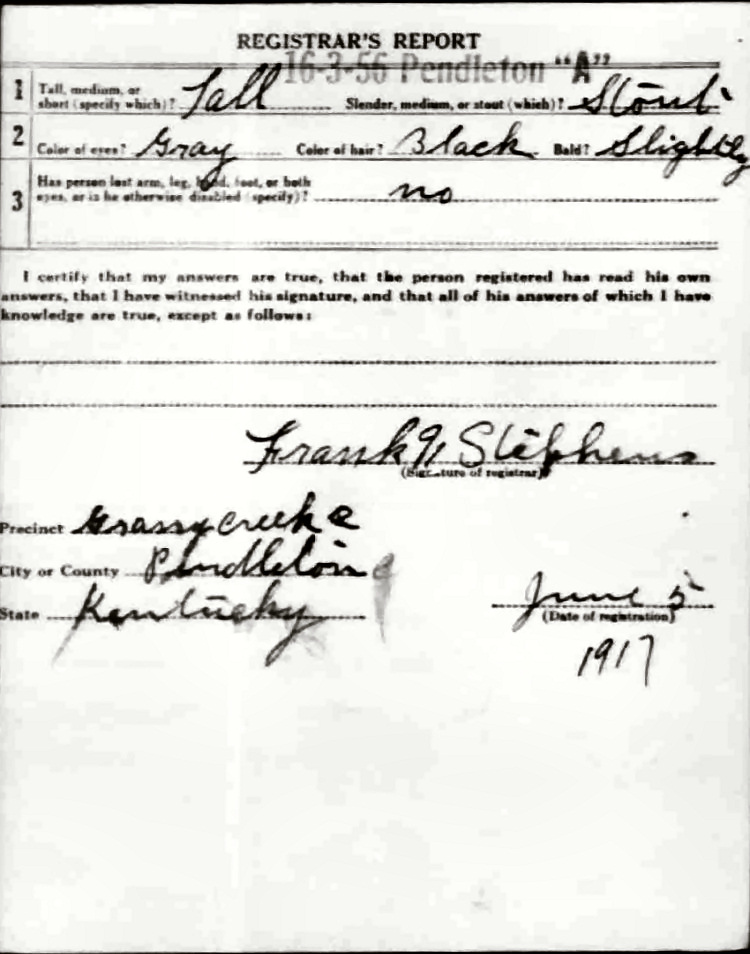 REGISTRAR'S REPORT
16-3-56 Pendleton "A"
1 Tall, medium, or short (specify which)? Tall Slender, medium, or stout (which)? Stout
2 Color of eyes? Gray Color of hair? Black Bald? Slightly
3 Has person lost arm, leg, hand, foot, or both
eyes, or is he otherwise disabled (specify)? no
I certify that my answers are true, that the person registered has read his own
answers, that I have witnessed his signature, and that all of his answers of which I have
knowledge are true, except as follows:
Frank Stephens
(Signature of registrar)
Precinct Grassy creek
City or County Pendleton
State Kentucky
June 5
(Date of registration)
1917